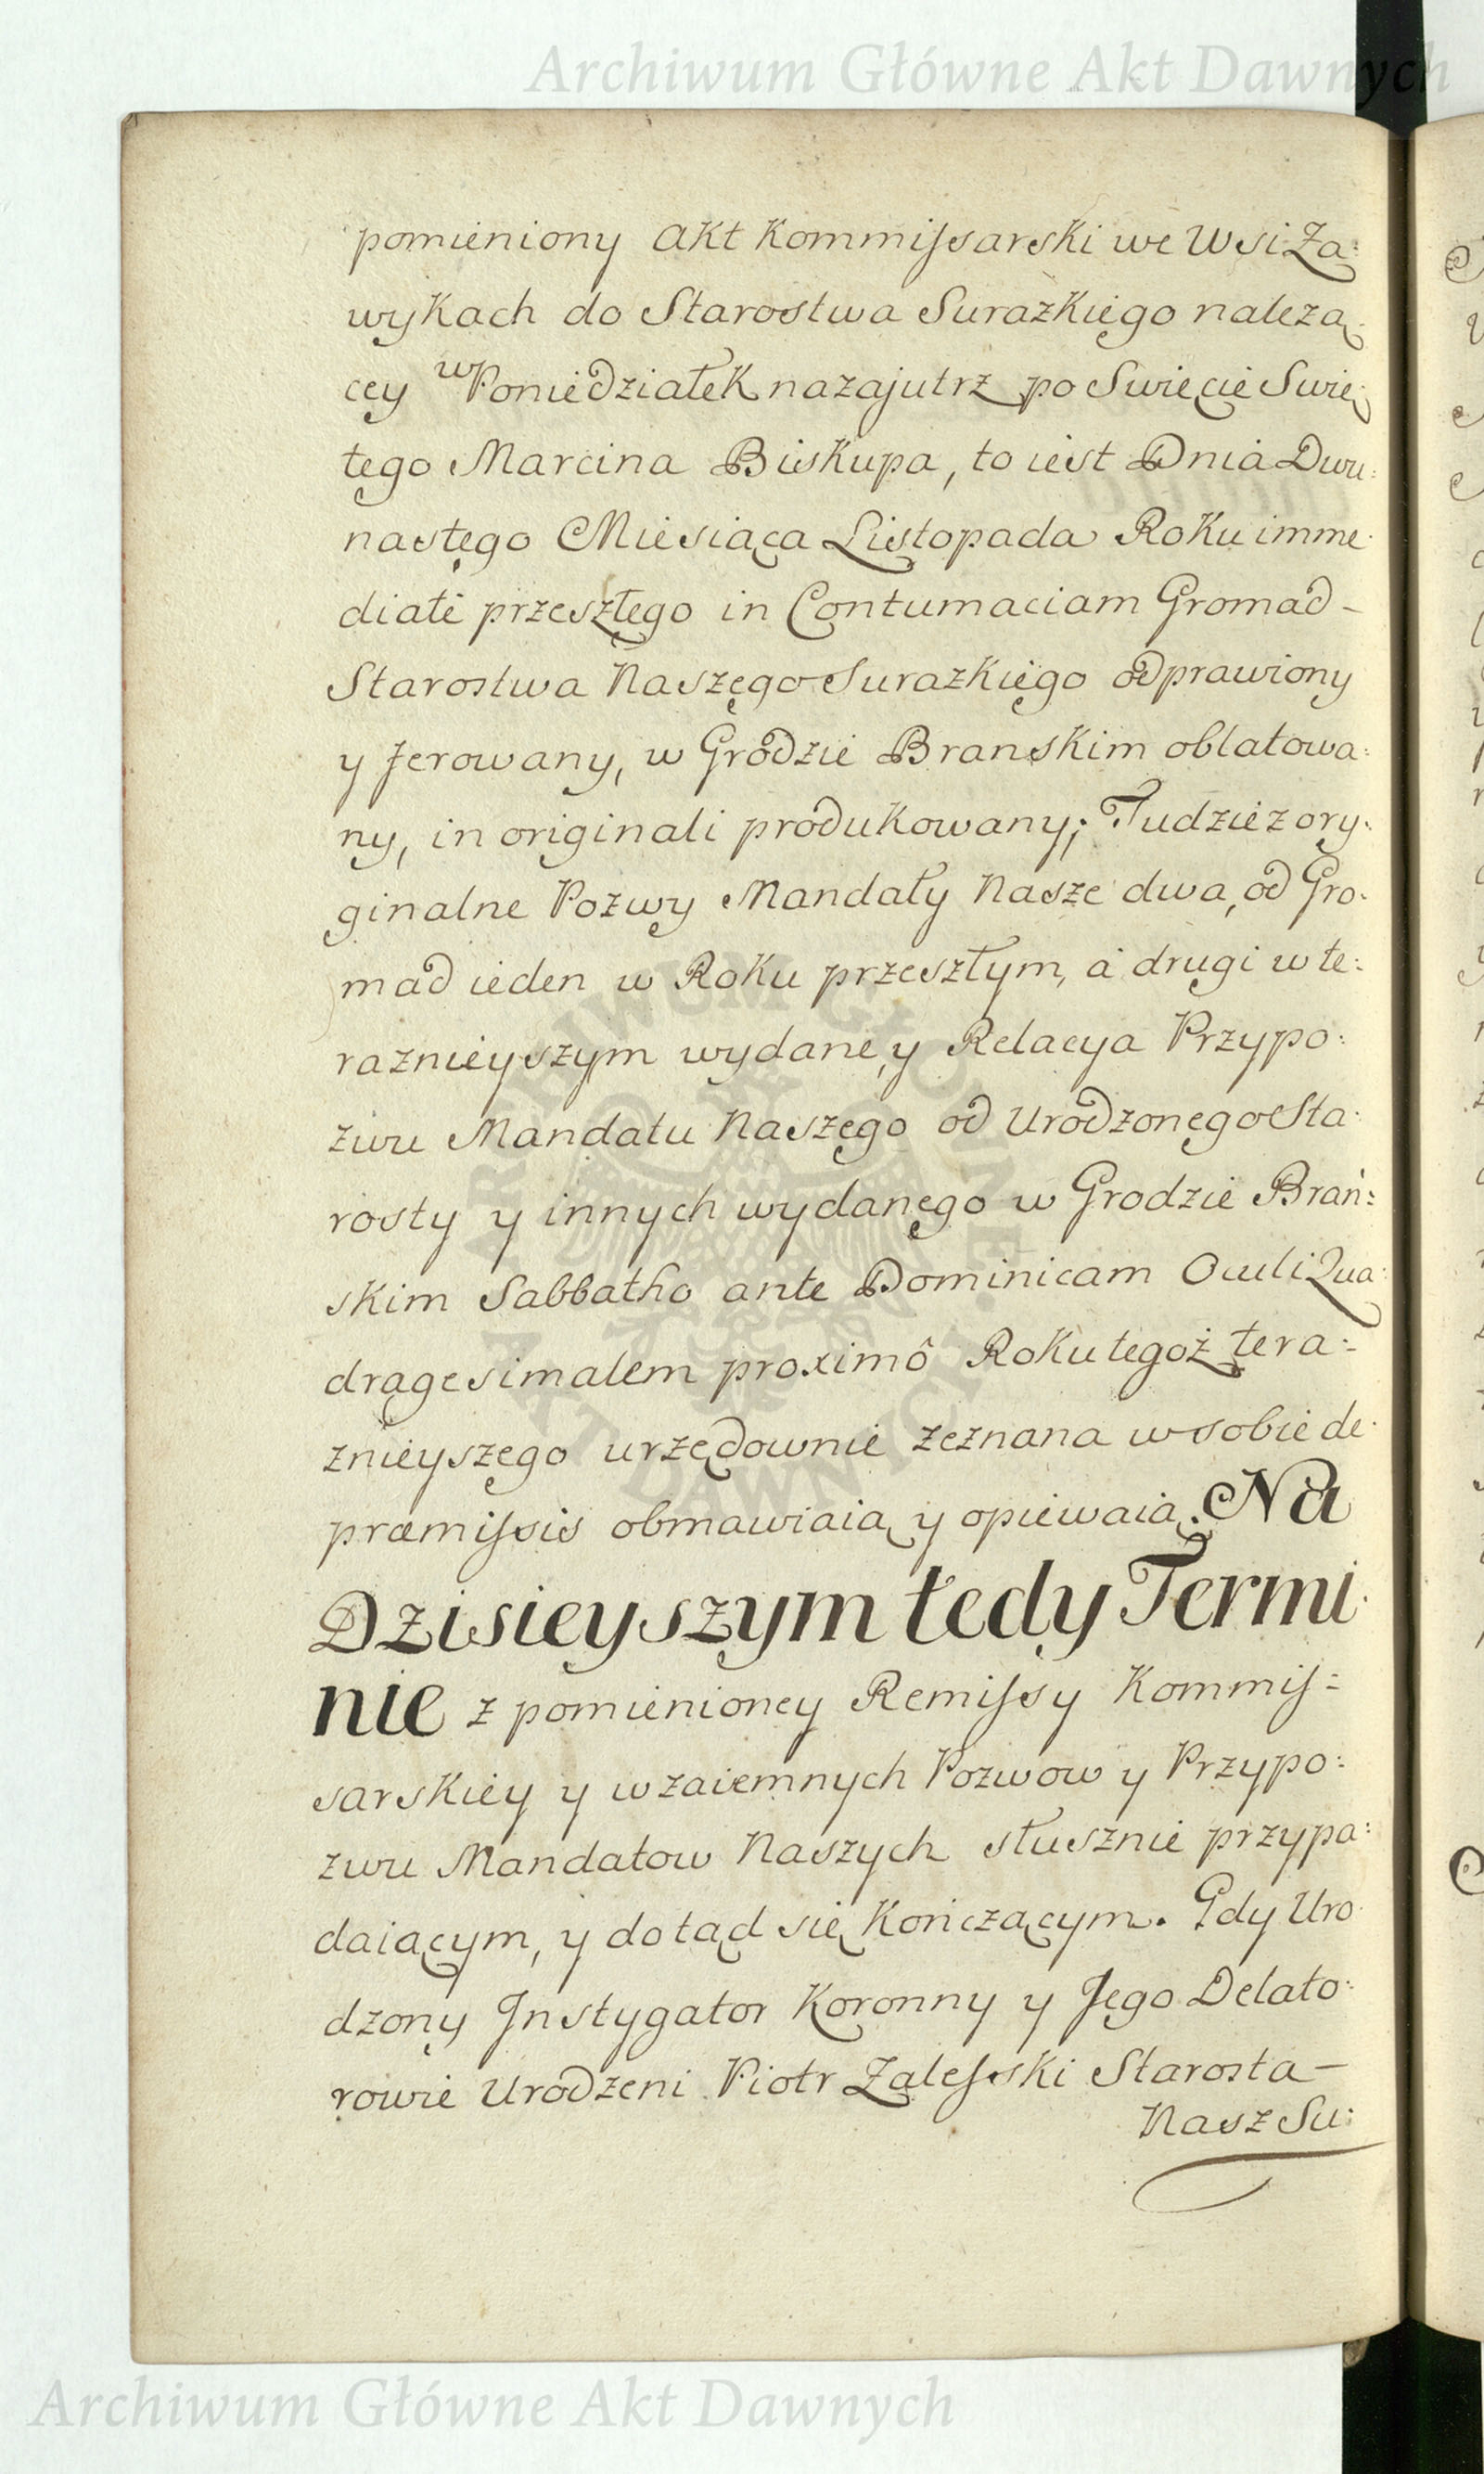 Archiwum Główne Akt Dawnych
pomieniony Akt Kommissarski we Wsi Za:
wykach do Starostwa Surazkiego nalezą:
cey w Poniedziałek nazajutrz po Swięcie Swię:
tego Marcina Biskupa, to iest Dnia Dwu:
nastego Miesiąca Listopada Roku imme:
diate przeszłego in Contumaciam Gromad –
Starostwa Naszego Surazkiego odprawiony
y ferowany, w Grodzie Branskim oblatowa:
ny, in originali produkowany; Tudziez ory:
ginalne Pozwy Mandaty Nasze dwa, od Gro:
mad ieden w Roku przeszłym, a drugi w te:
raznieyszym wydane, y Relacya Przypo:
zwu Mandatu Naszego od Urodzonego Sta:
rosty y innych wydanego w Grodzie Brań:
skim Sabbatho ante Dominicam Oculi Qua:
dragesimalem proximô Roku tegoż tera:
znieyszego urzędownie zeznana w sobie de
præmissis obmawiaią y opiewaią. Na
Dzisieyszym tedy Termi:
nie z pomienioney Remissy Kommis:
sarskiey y wzaiemnych Pozwow y Przypo:
zwu Mandatow Naszych słusznie przypa:
daiącym, y dotąd się kończącym. Gdy Uro:
dzony Instygator Koronny y Jego Delato:
rowie Urodzeni Piotr Zalesski Starosta –
Nasz Su:
ARCHIWUM GŁÓWNE AKT DAWNYCH
Archiwum Główne Akt Dawnych